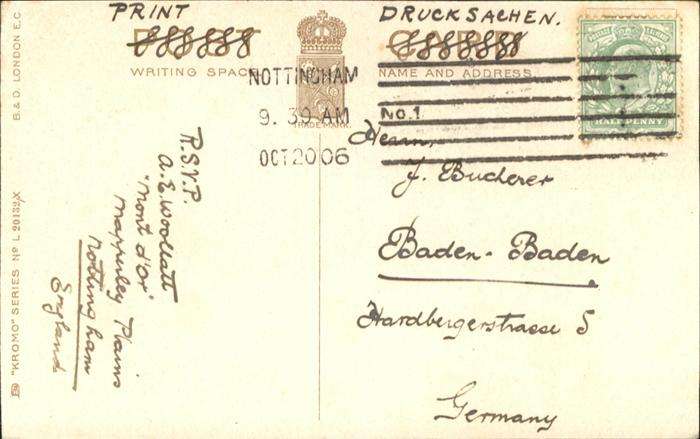 PRINT
DRUCKSACHEN.
POST CARD
WRITING SPACE
NAME AND ADDRESS
TRADE MARK
HALFPENNY
NOTTINGHAM
9. 39 AM
OCT 20 06
No. 1
Herrn,
J. Bucherer
Baden-Baden
Hardbergerstrasse 5
Germany
R.S.V.P.
A. E. Woollatt
"Mont d'Or"
Mapperley Plains
Nottingham
England
B. & D. LONDON E.C.
"KROMO" SERIES No L 20132/X